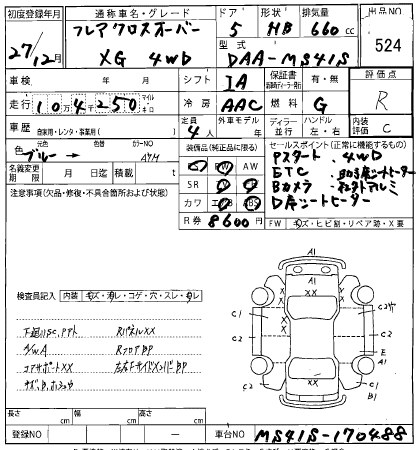 初度登録年月 通称車名・グレード ドア 形状 排気量 出品NO
27/12月 フレアクロスオーバー 5 HB 660cc 524
XG 4WD 型式 DAA-MS41S
車検 年 月 シフト IA 保証書 有・無 評価点
走行 10万4千250 マイル キロ 冷房 AAC 燃料 G R
車歴 自家用・レンタ・事業用( ) 定員 4人 外車モデル 年 ディーラー 並行 ハンドル 左・右 内装評価 C
色 元色 ブルー → 色替 カラーNO
装備品(純正品に限る) セールスポイント(正常に機能するもの)
名義変更期限 月 日 積載 t
AW
SR
カワ ABS
R券 8600円
Pスタート 4WD
ETC 助手席シートヒーター
Bカメラ 社外アルミ
D席シートヒーター
注意事項(欠品・修復・不具合箇所および状態)
FW キズ・ヒビ割・リペア跡・X要
検査員記入 内装 キズ・ヨレ・コゲ・穴・スレ・ヨレ
下廻りSC,サビ RパネルXX
A/W A RフロアBP
コアサポートXX 左右FサイドメンバーBP
A1
XX
C1
C2
C2
C1
C2
E
A1
C2
C1
B1
XX
A1
長さ cm 幅 cm 高さ cm
登録NO 車台NO MS41S-170488